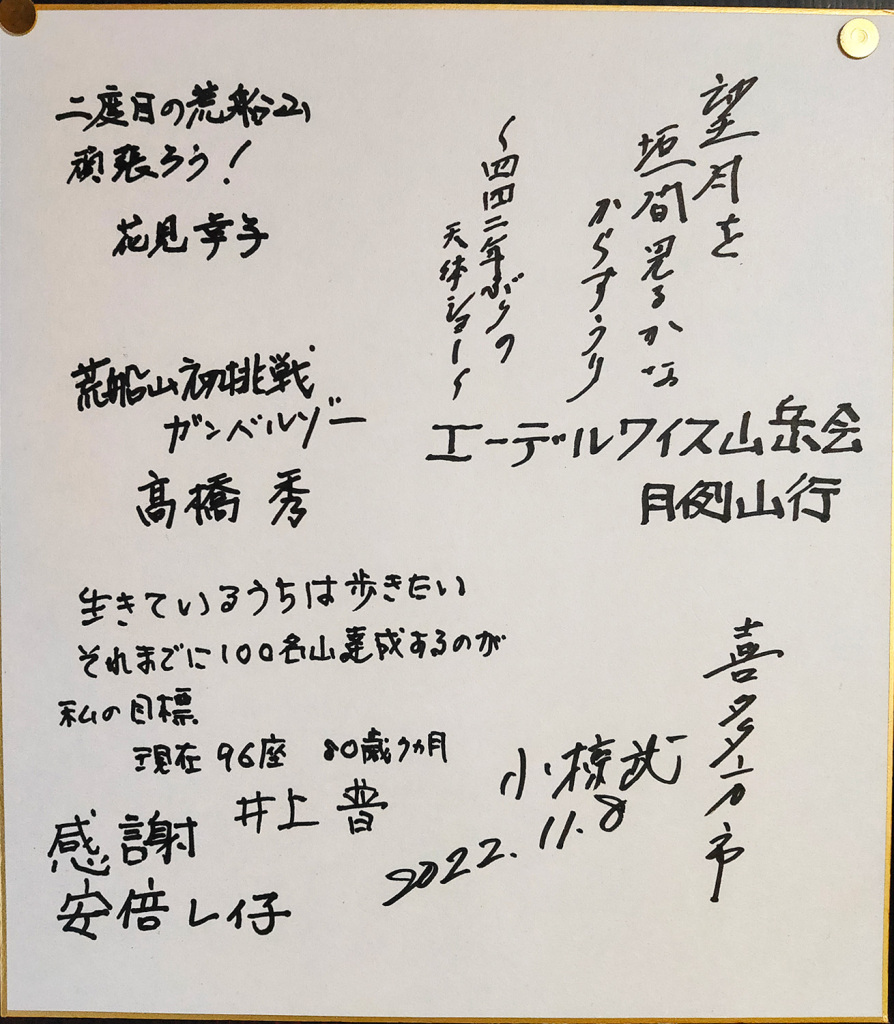 望月を
垣間見るかな
からすうり
〜四四二年ぶりの
天体ショー〜
エーデルワイス山岳会
月例山行
喜多方市
小椋武
2022.11.8
二度目の荒船山
頑張ろう！
花見幸子
荒船山初挑戦
ガンバルゾー
髙橋 秀
生きているうちは歩きたい
それまでに100名山達成するのが
私の目標
現在96座 80歳9ヵ月
井上 普
感謝
安倍レイ子